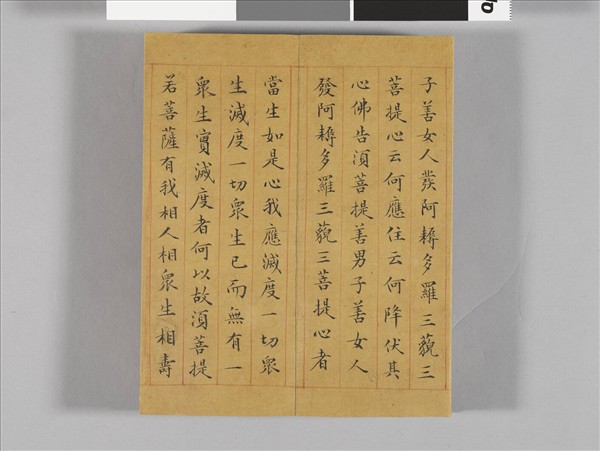 子善女人發阿耨多羅三藐三
菩提心云何應住云何降伏其
心佛告須菩提善男子善女人
發阿耨多羅三藐三菩提心者
當生如是心我應滅度一切眾
生滅度一切眾生已而無有一
眾生實滅度者何以故須菩提
若菩薩有我相人相眾生相壽